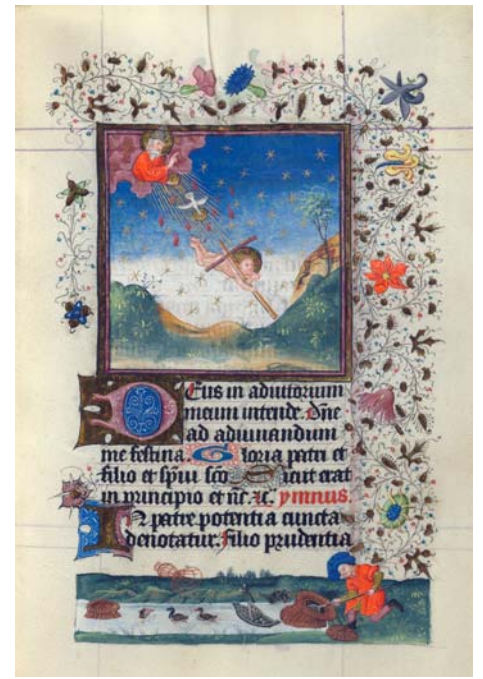 Deus in adiutorium
meum intende. Dñe
ad adiuuandum
me festina. Gloria patri et
filio et spũi sc̃o. Sicut erat
in principio et nc̃. ꝛc̃. ymnus.
IN patre potentia cuncta
denotatur. filio prudentia